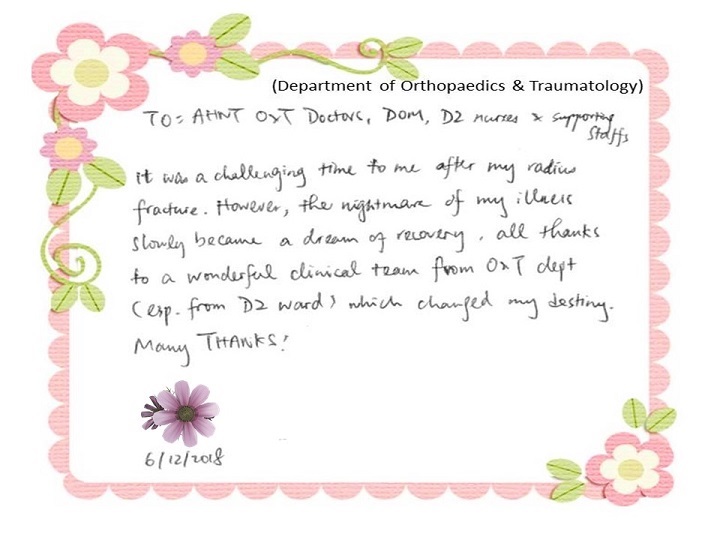 (Department of Orthopaedics & Traumatology)
TO: AHNT O&T Doctors, DOM, D2 nurses & supporting
staffs
it was a challenging time to me after my radius
fracture. However, the nightmare of my illness
slowly became a dream of recovery, all thanks
to a wonderful clinical team from O&T dept
(esp. from D2 ward) which changed my destiny.
Many THANKS!
6/12/2018